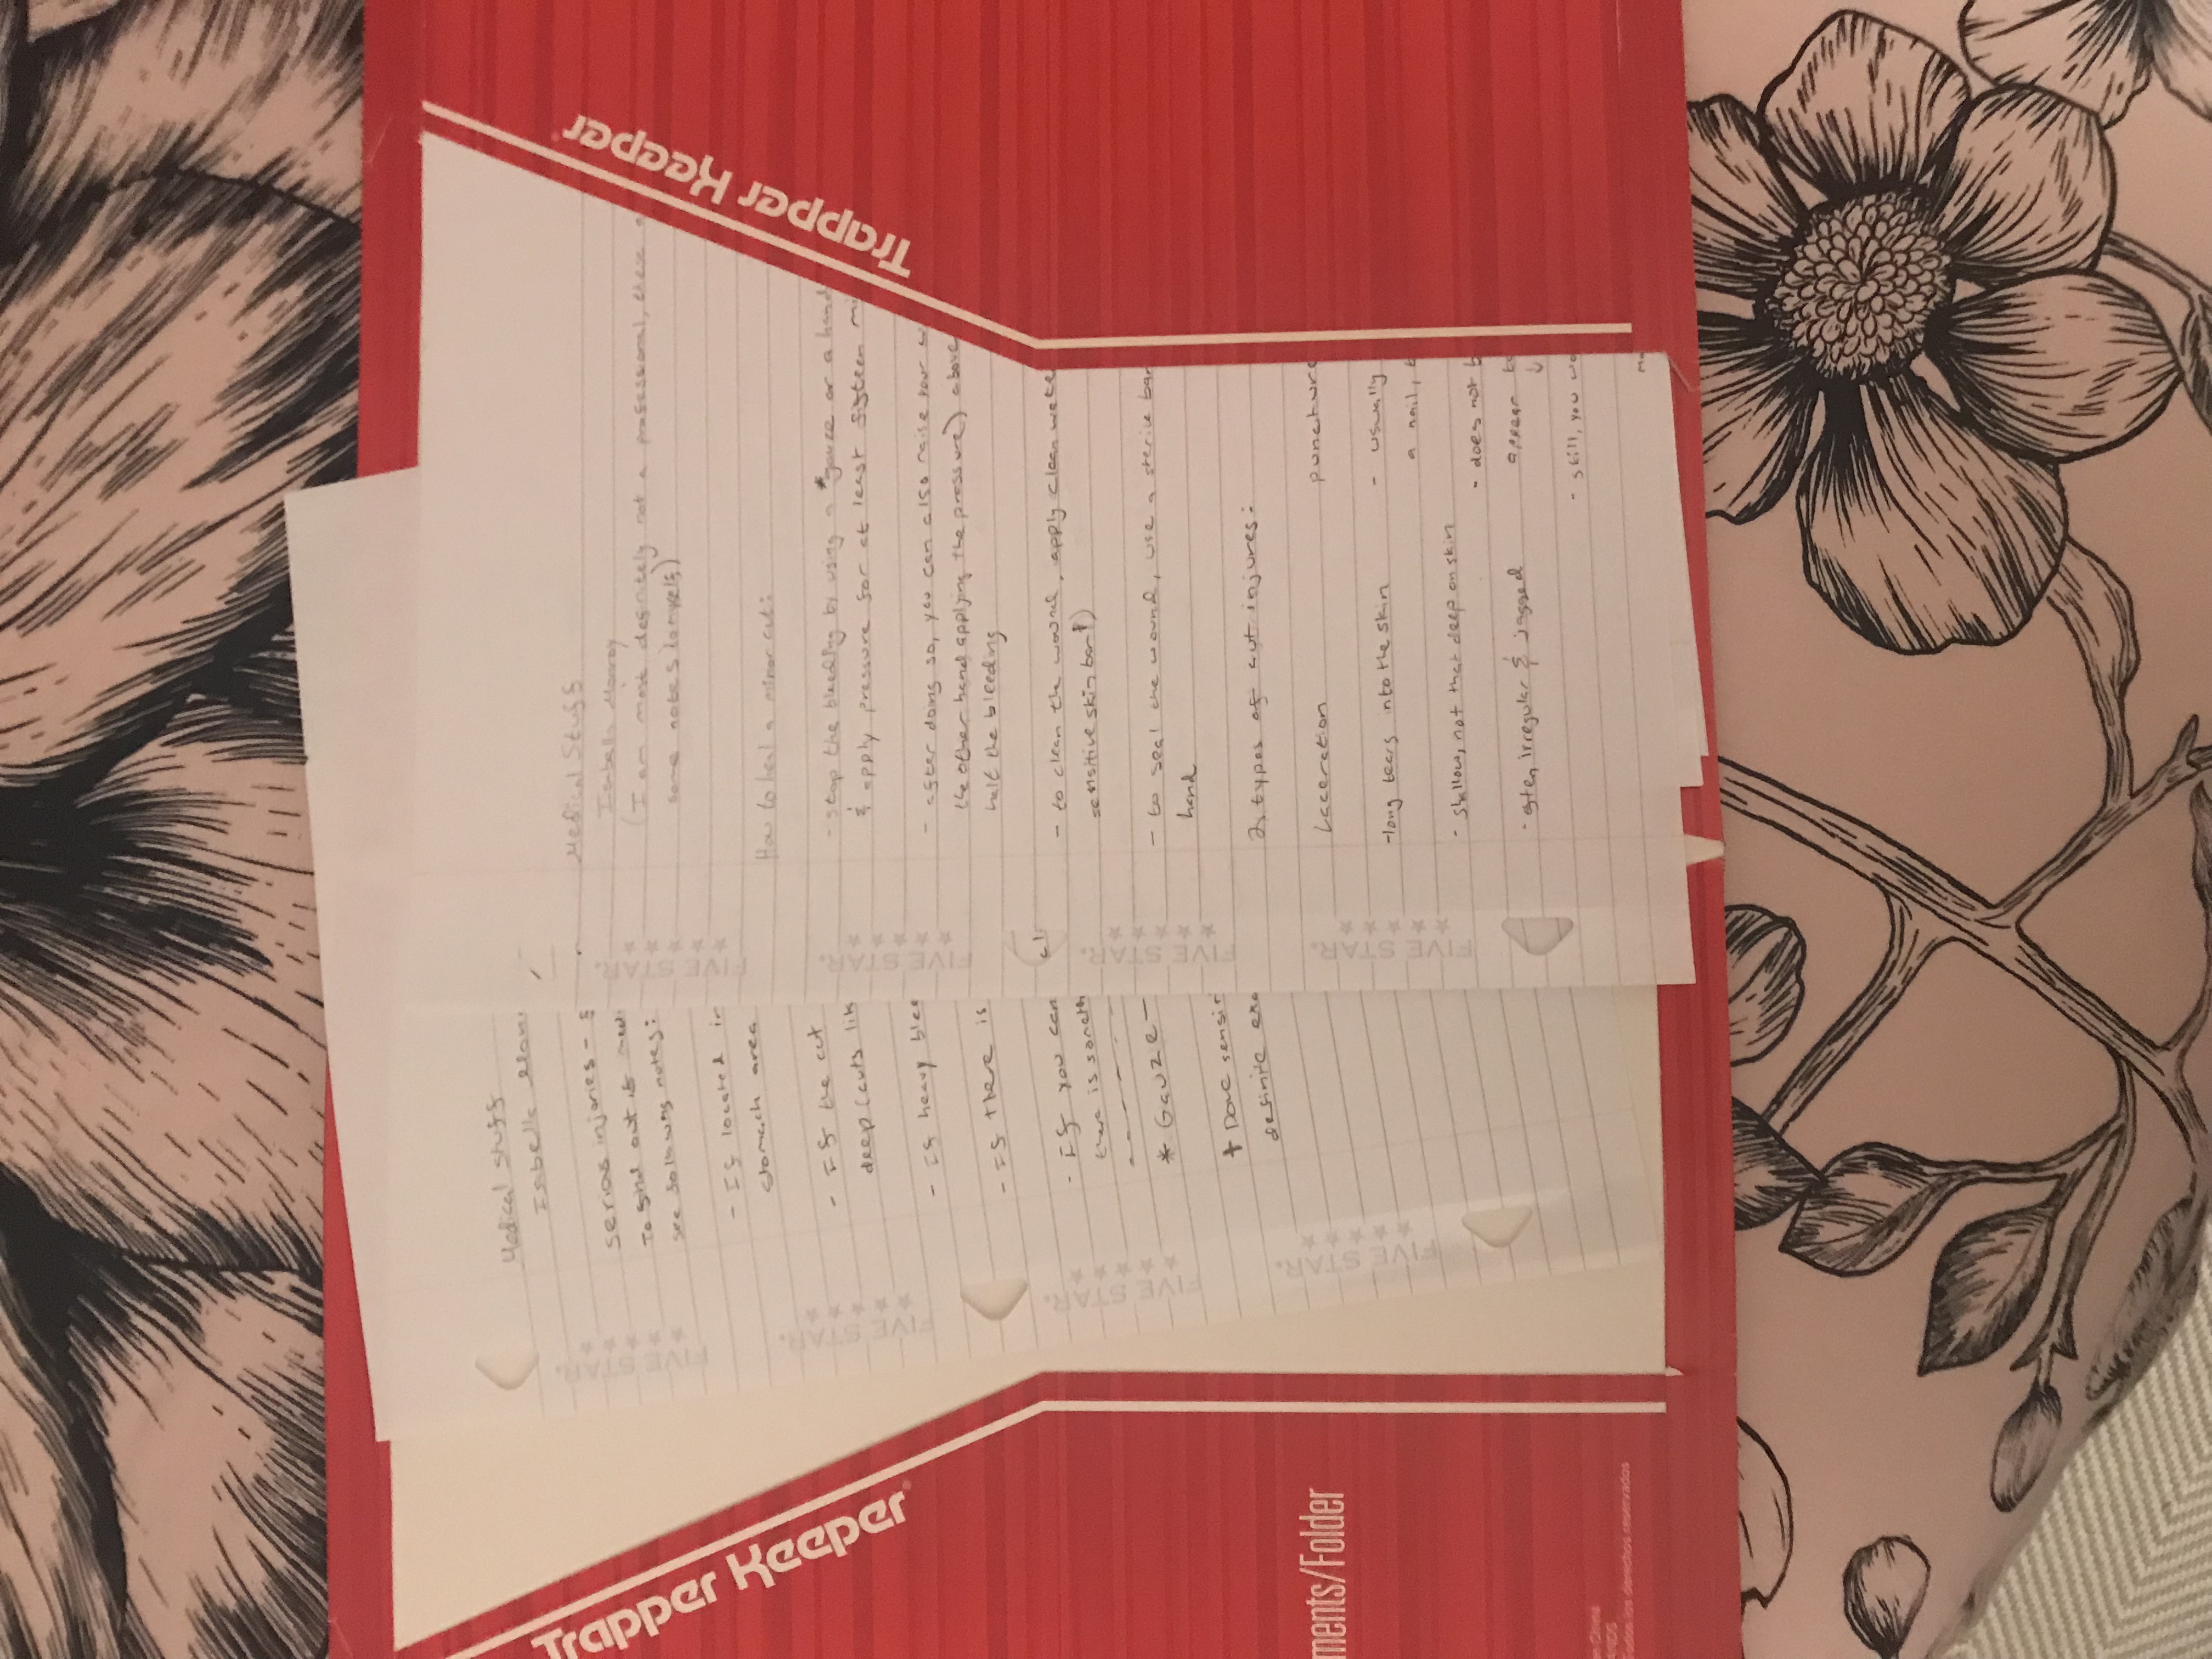 Trapper Keeper
ments/Folder
en China
Todos los derechos reservados
Medical Stuff
Isabella
serious injories -
To find out if
see following notes:
- If located in
stomach area
- If the cut
deep (cuts lik
- If heavy blee
- If there is
- If you can
there is someth
* Gauze -
† Dove sensit
definite exa
FIVE STAR.
FIVE STAR.
FIVE STAR.
FIVE STAR.
Medical Stuff
Isabella Monroy
(I am most definitely not a professional, these a
some notes to myself)
How to heal a minor cut:
- stop the bleeding by using a *gauze or a hand
& apply pressure for at least fifteen mi
- after doing so, you can also raise your w
the other hand applying the pressure) above
halt the bleeding
- to clean the wound, apply clean wate
sensitive skin bar†)
- to seal the wound, use a sterile ban
hand
2 types of cut injures:
Laceration
-long tears into the skin
- shallow, not that deep on skin
- often irregular & jagged
puncture
- usually
a nail, t
- does not b
appear to
↓
- still, you wo
mo
FIVE STAR.
FIVE STAR.
FIVE STAR.
FIVE STAR.
Trapper Keeper